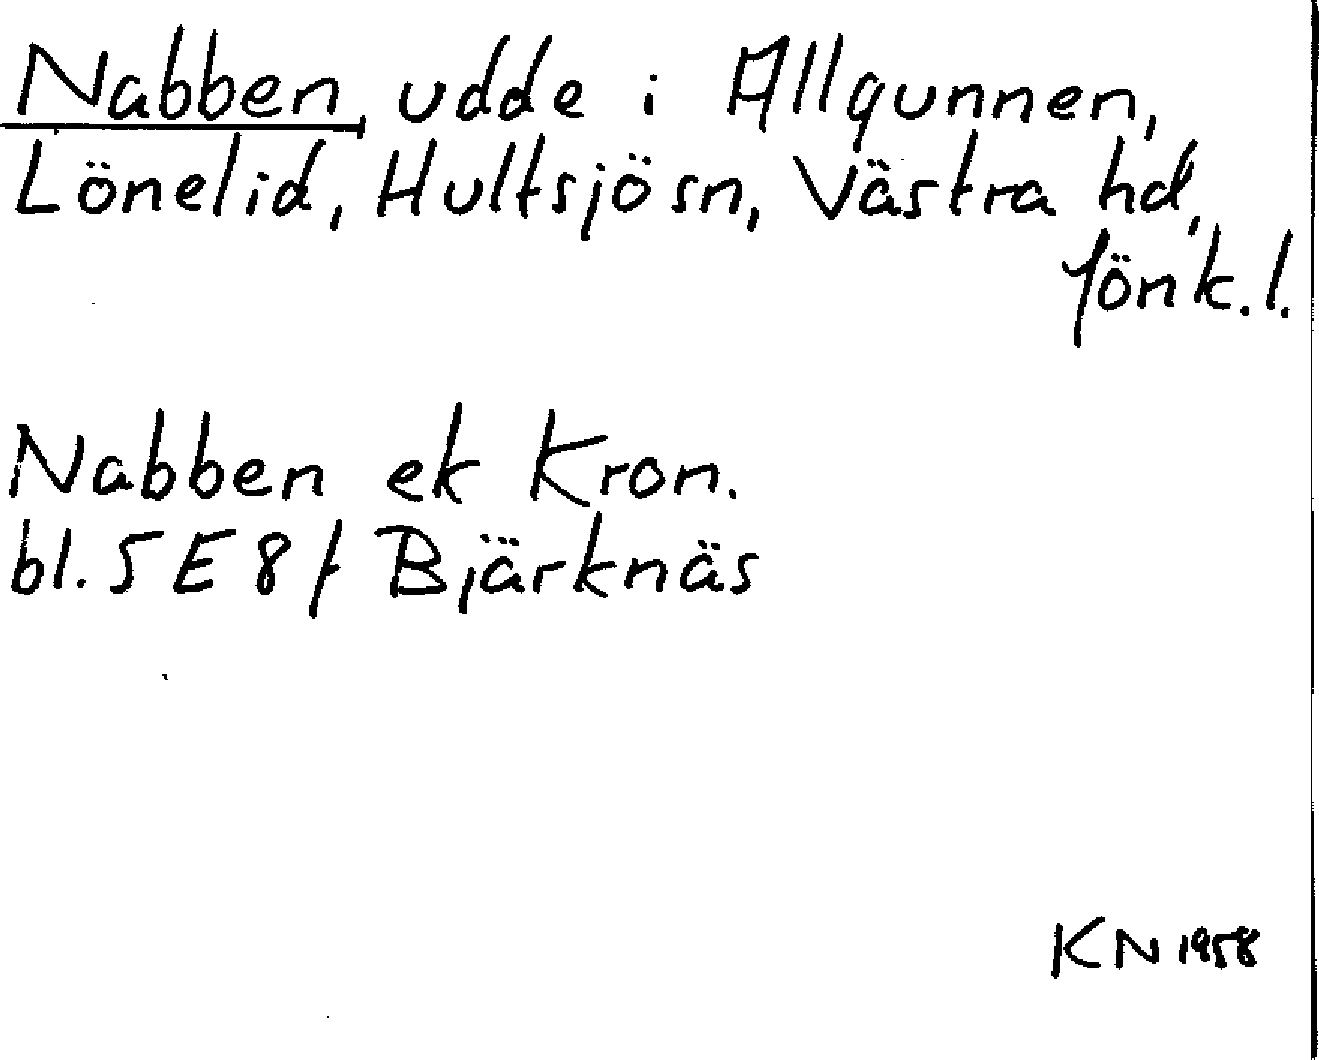 Nabben, udde i Allgunnen,
Lönelid, Hultsjö sn, Västra hd,
Jönk. l.
Nabben ek Kron.
bl. 5 E 8 f Bjärknäs
KN 1958